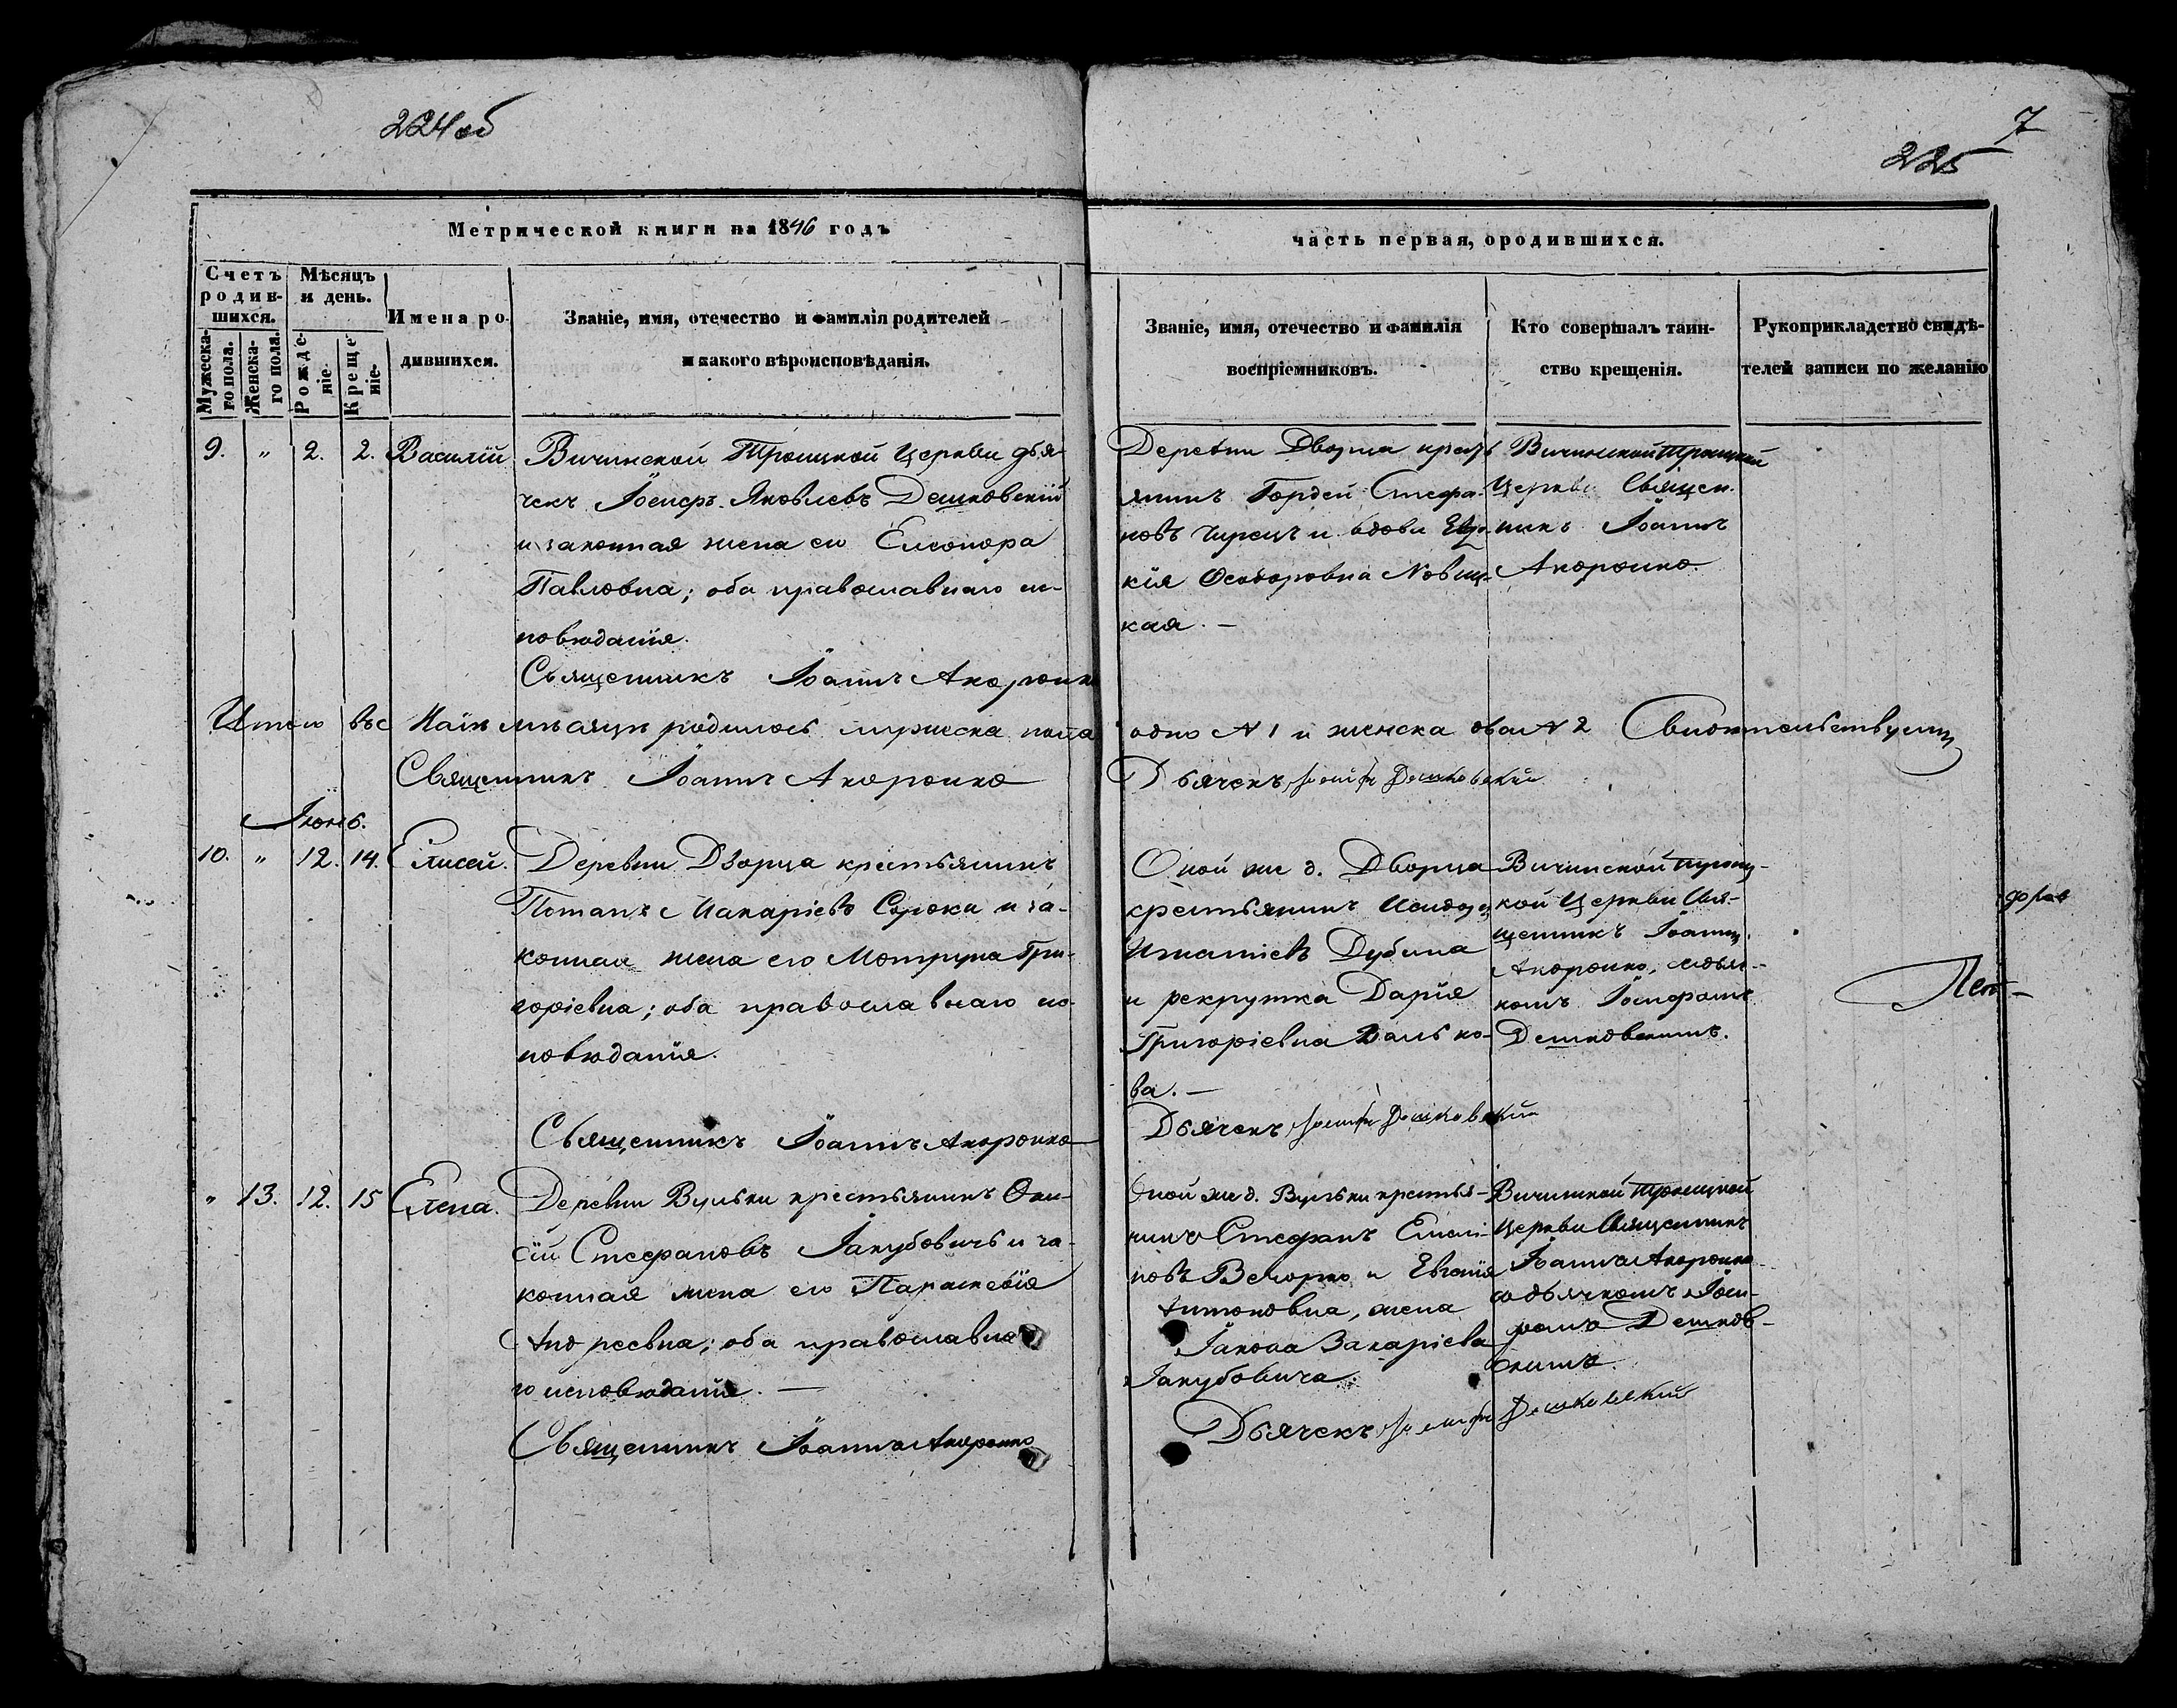 224об
7
225
Метрической книги на 1846 годъ
часть первая, ородившихся.
Счетъ родив-шихся.
Мѣсяцъ и день.
Мужеска-го пола.
Женска-го пола.
Рожде-ніе.
Креще-ніе.
Имена ро-
дившихся.
Званіе, имя, отечество и фамилія родителей
и какого вѣроисповѣданія.
Званіе, имя, отечество и фамилія
воспріемниковъ.
Кто совершалъ таин-
ство крещенія.
Рукоприкладство свидѣ-
телей записи по желанію
9. " 2. 2. Василій
Вичинской Троицкой Церкви дья-
чекъ Іосифъ Яковлевъ Дешковскій
и законная жена его Елеонора
Павловна; оба православнаго ис-
повѣданія.
Священникъ Іоаннъ Акоронко
Деревни Дворца крест
янинъ Гордей Стефа-
новъ и вдова
кія Ѳеодоровна Новиц-
кая. —
Вичинской Троицкой
Церкви Священ-
никъ Іоаннъ
Акоронко.
Итого въ Маіѣ мѣсяцѣ родилось мужеска пола
одно № 1 и женска два № 2 Свидѣтельствуемъ
Священникъ Іоаннъ Акоронко
Дьячекъ Іосифъ Дешковскій
Іюнь.
10. " 12. 14. Елисей.
Деревни Дворца крестьянинъ
Потапъ Макаріевъ Сорока и за-
конная жена его Мотруна Гри-
горіевна; оба православнаго ис-
повѣданія.
Священникъ Іоаннъ Акоронко
Оной же д. Дворца
крестьянинъ
Игнатіевъ Дубина
и рекрутка Дарія
Григоріевна
ва. —
Дьячекъ Іосифъ Дешковскій
Вичинской Троиц-
кой Церкви Свя-
щенникъ Іоаннъ
Акоронко, съ дьяч-
комъ Іосифомъ
Дешковскимъ.
" 13. 12. 15 Елена.
Деревни Вульки крестьянинъ Они-
сій Стефановъ Якубовичъ и за-
конная жена его Параскевія
Андреевна; оба православна
го исповѣданія. —
Священникъ Іоаннъ Акоронко
Оной же д. Вульки крестья-
нинъ Стефанъ
новъ и Евгенія
Антоновна, жена
Іакова Захаріева
Якубовича.
Дьячекъ Іосифъ Дешковскій
Вичинской Троицкой
Церкви Священникъ
Іоаннъ Акоронко
съ дьячкомъ Іоси-
фомъ Дешков-
скимъ